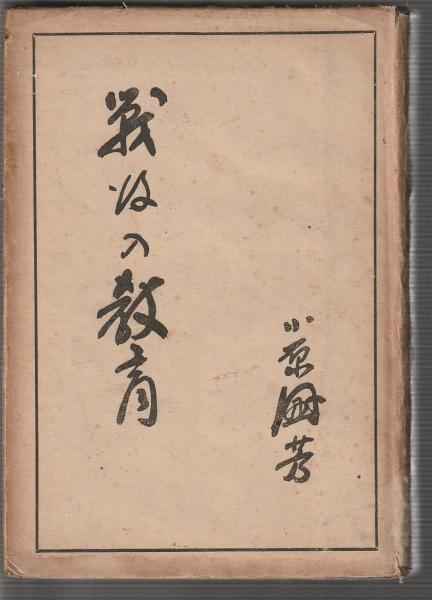 戦後の教育
小原國芳